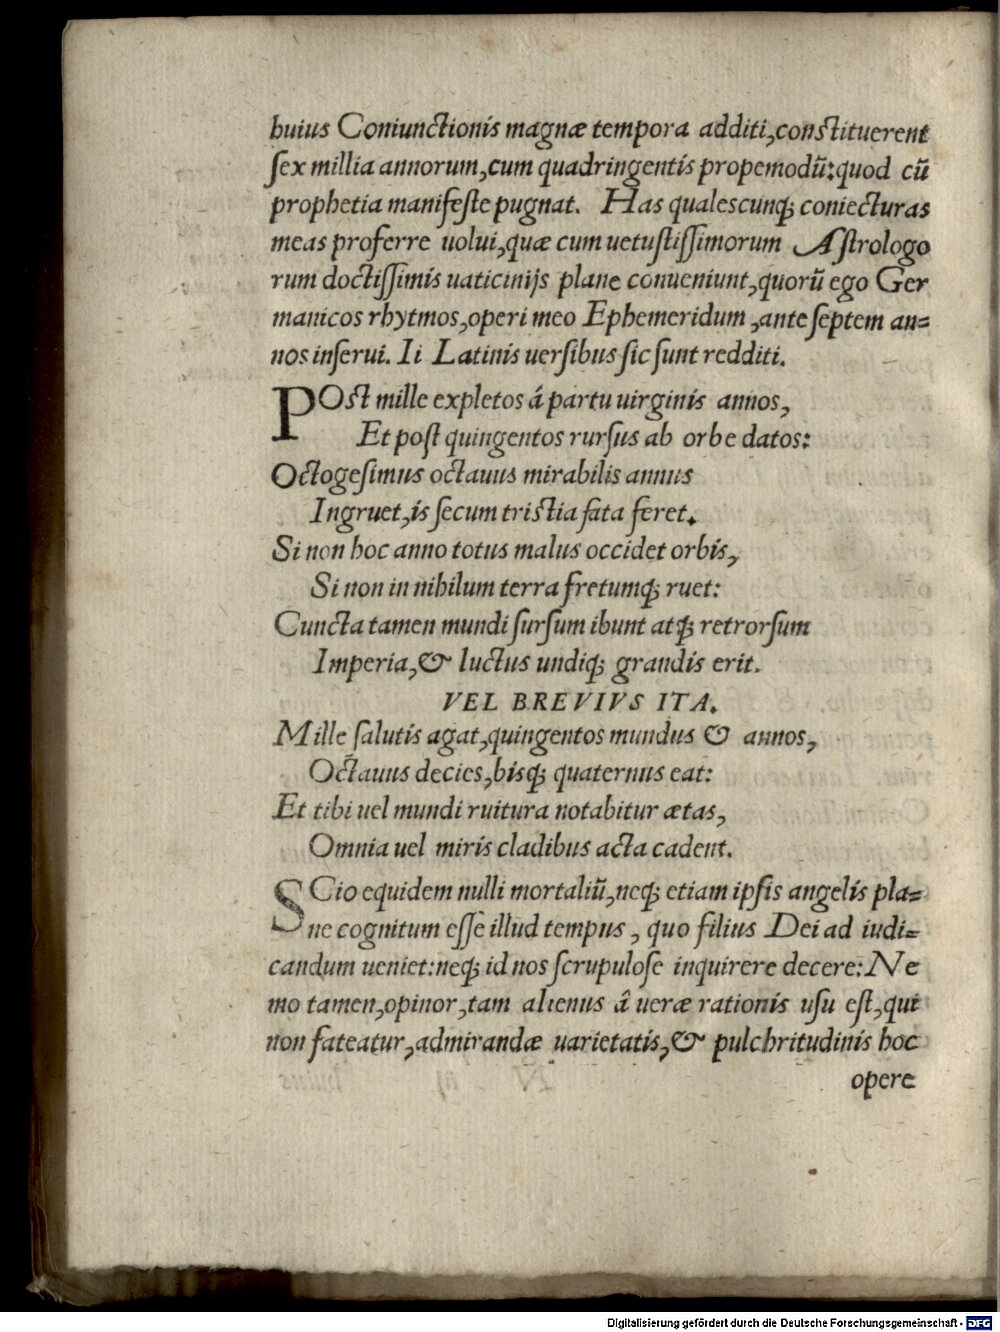 huius Coniunctionis magnæ tempora additi,constituerent
sex millia annorum,cum quadringentis propemodū:quod cū
prophetia manifeste pugnat. Has qualescunq; coniecturas
meas proferre uolui,quæ cum uetustissimorum Astrologo
rum doctissimis uaticinijs plane conueniunt,quorū ego Ger
manicos rhytmos,operi meo Ephemeridum ,ante septem an=
nos inserui. Ii Latinis uersibus sic sunt redditi.
POst mille expletos á partu uirginis annos,
Et post quingentos rursus ab orbe datos:
Octogesimus octauus mirabilis annus
Ingruet,is secum tristia fata feret.
Si non hoc anno totus malus occidet orbis,
Si non in nihilum terra fretumq; ruet:
Cuncta tamen mundi sursum ibunt atq; retrorsum
Imperia,& luctus undiq; grandis erit.
VEL BREVIVS ITA.
Mille salutis agat,quingentos mundus & annos,
Octauus decies,bisq; quaternus eat:
Et tibi uel mundi ruitura notabitur ætas,
Omnia uel miris cladibus acta cadent.
SCio equidem nulli mortaliū,neq; etiam ipsis angelis pla=
ne cognitum esse illud tempus , quo filius Dei ad iudi=
candum ueniet:neq; id nos scrupulose inquirere decere:Ne
mo tamen,opinor,tam alienus â ueræ rationis usu est,qui
non fateatur,admirandæ uarietatis,& pulchritudinis hoc
opere
Digitalisierung gefördert durch die Deutsche Forschungsgemeinschaft - DFG